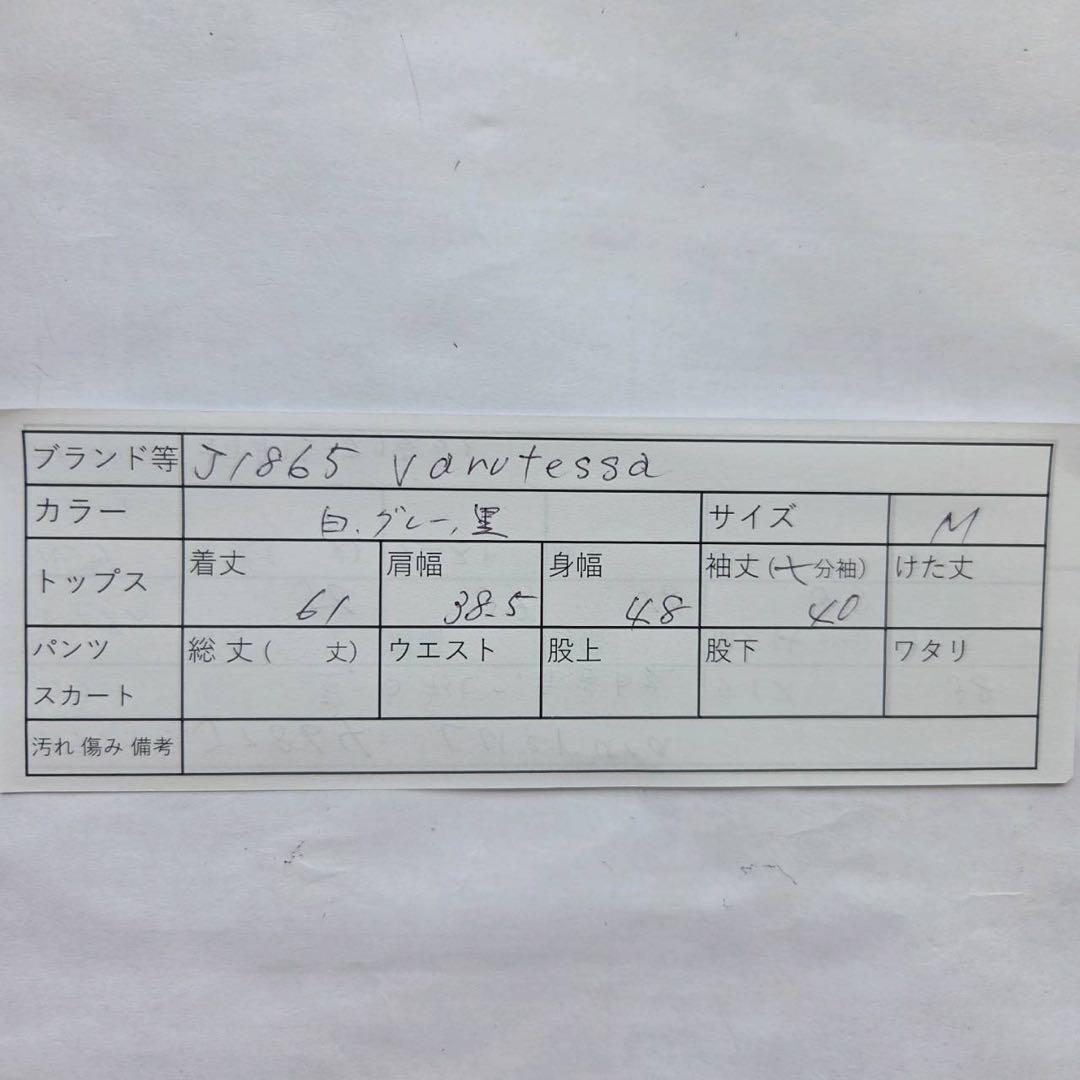 ブランド等 J1865 vanutessa
カラー 白.グレー,黒 サイズ M
トップス 着丈 61 肩幅 38.5 身幅 48 袖丈(七分袖) 40 けた丈
パンツ スカート 総丈( 丈) ウエスト 股上 股下 ワタリ
汚れ 傷み 備考